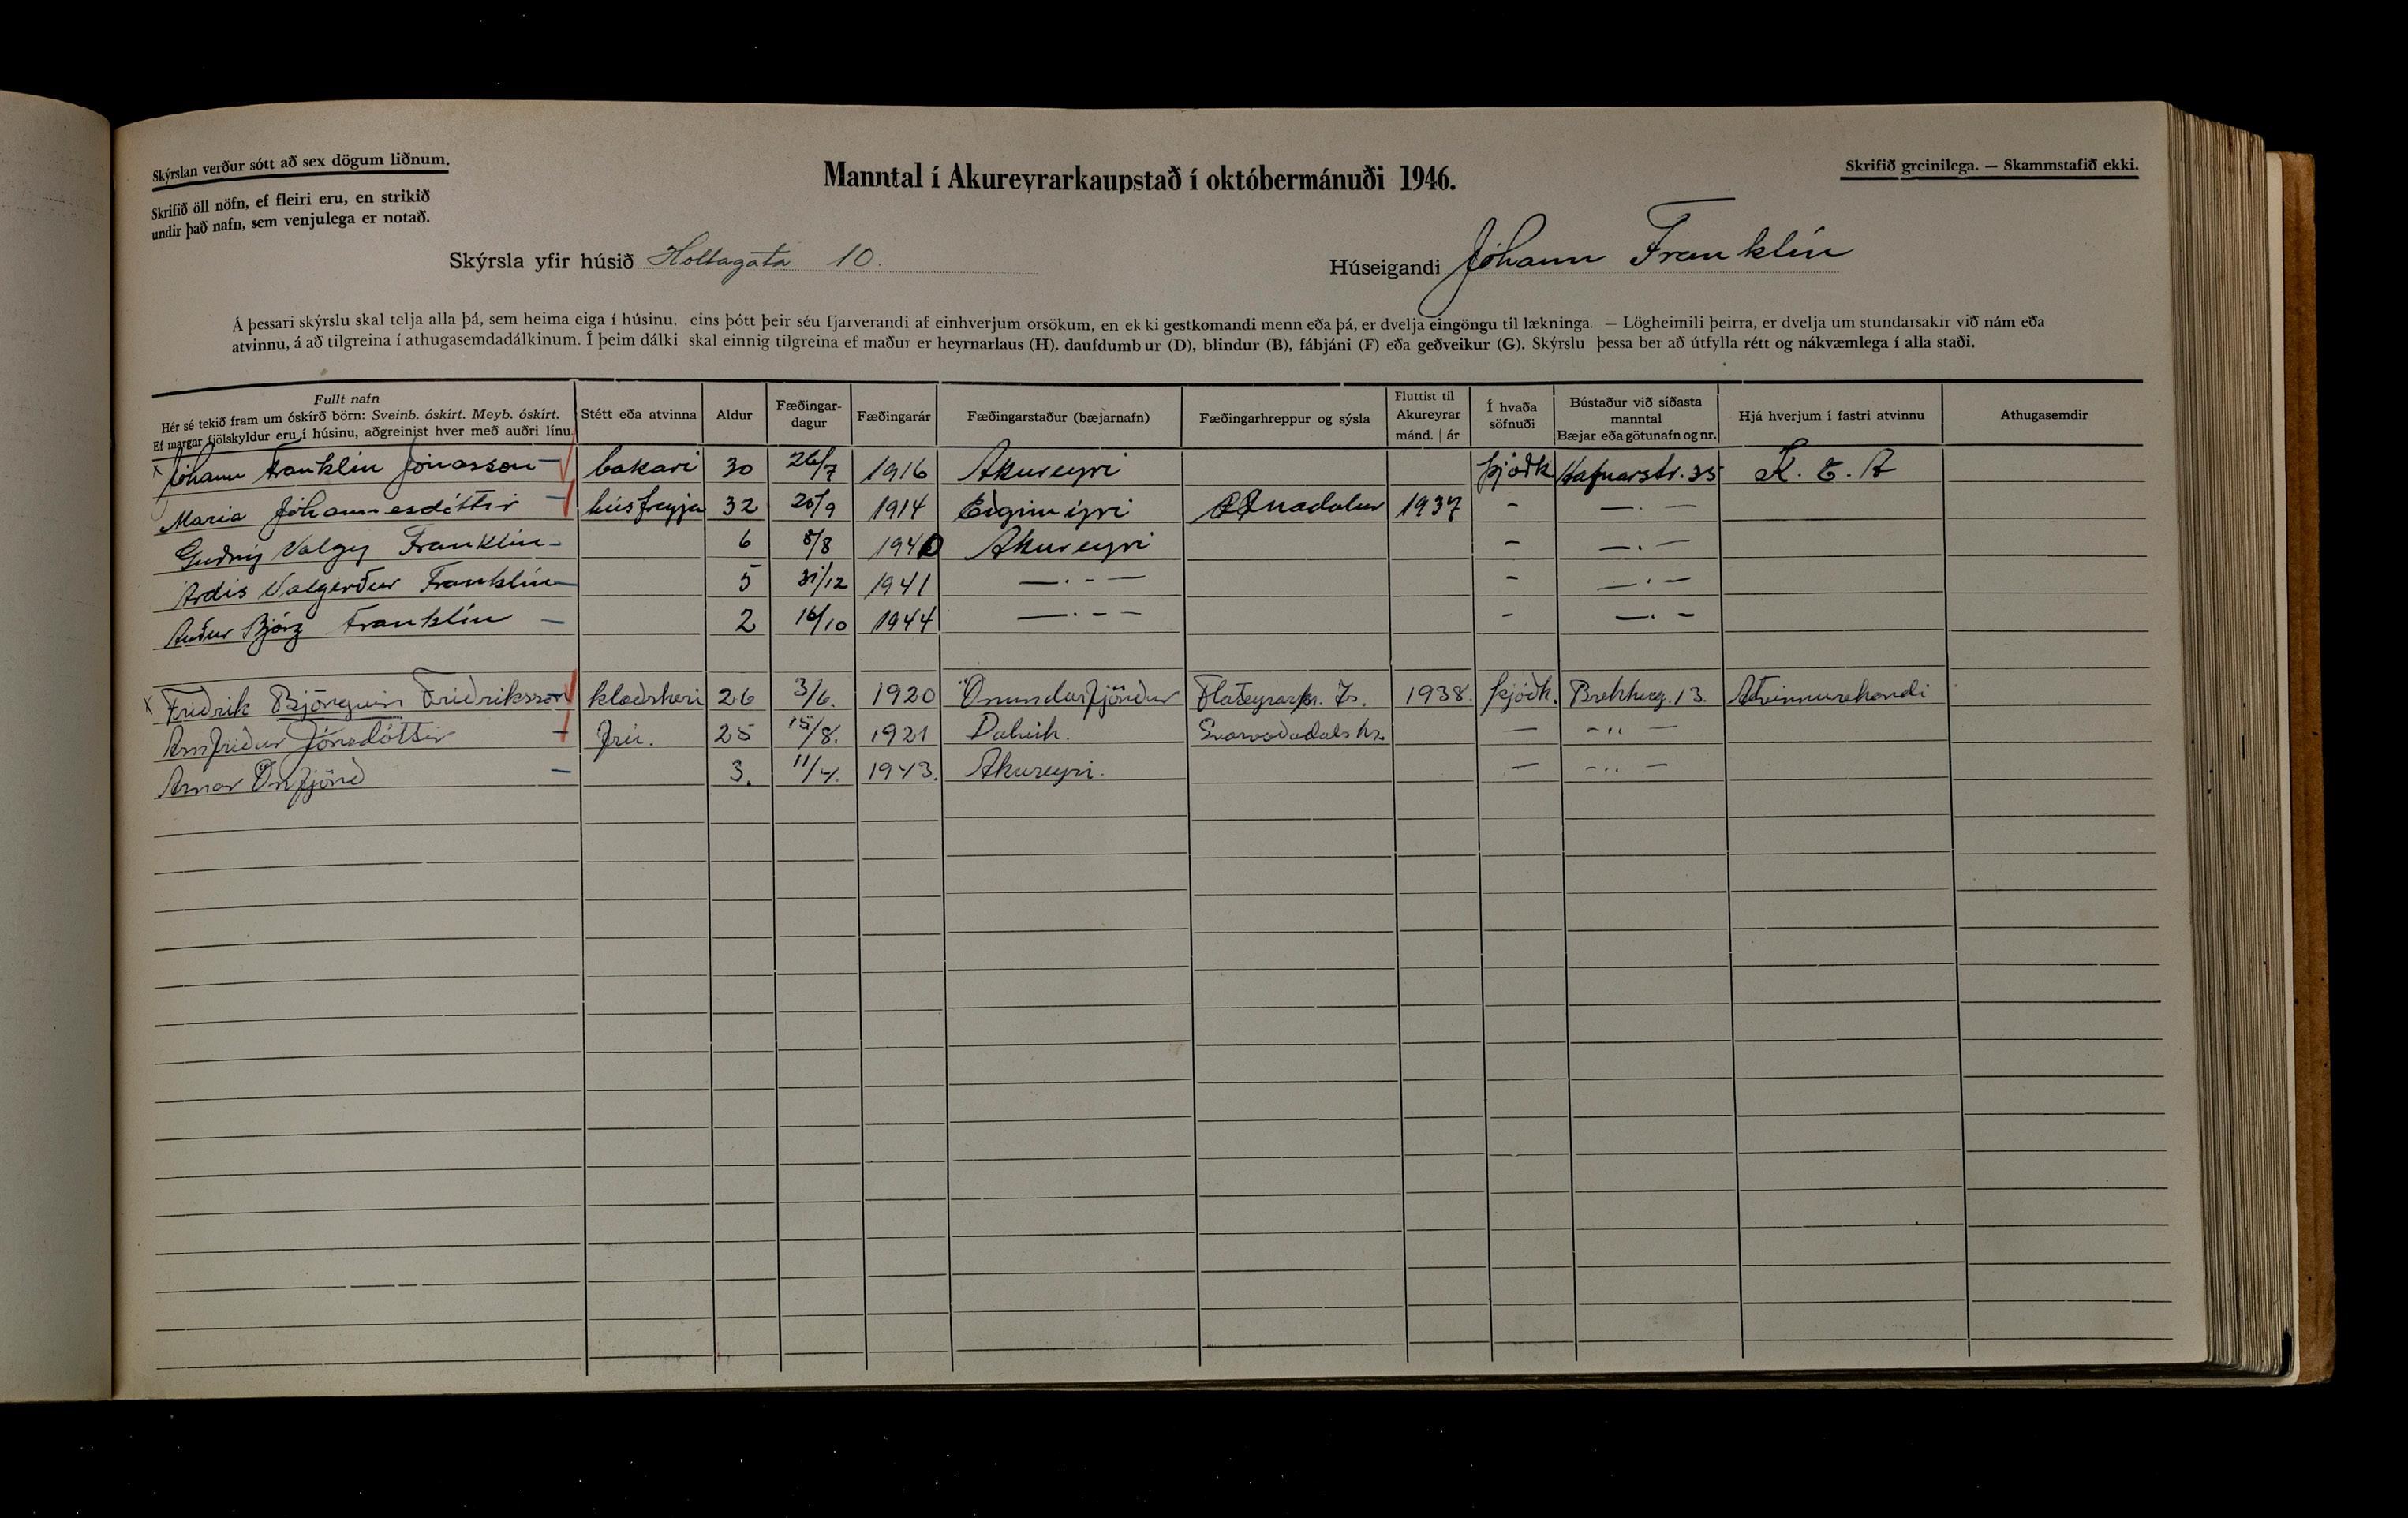 Skýrslan verður sótt að sex dögum liðnum.
Skrifið öll nöfn, ef fleiri eru, en strikið
undir það nafn, sem venjulega er notað.
Manntal í Akureyrarkaupstað í októbermánuði 1946.
Skrifið greinilega. — Skammstafið ekki.
Skýrsla yfir húsið Holtagata 10.
Húseigandi Jóhann Franklín
Á þessari skýrslu skal telja alla þá, sem heima eiga í húsinu, eins þótt þeir séu fjarverandi af einhverjum orsökum, en ekki gestkomandi menn eða þá, er dvelja eingöngu til lækninga. — Lögheimili þeirra, er dvelja um stundarsakir við nám eða
atvinnu, á að tilgreina í athugasemdadálkinum. Í þeim dálki skal einnig tilgreina ef maður er heyrnarlaus (H), daufdumbur (D), blindur (B), fábjáni (F) eða geðveikur (G). Skýrslu þessa ber að útfylla rétt og nákvæmlega í alla staði.
Fullt nafn
Hér sé tekið fram um óskírð börn: Sveinb. óskírt. Meyb. óskírt.
Ef margar fjölskyldur eru í húsinu, aðgreinist hver með auðri línu.
Stétt eða atvinna
Aldur
Fæðingar-
dagur
Fæðingarár
Fæðingarstaður (bæjarnafn)
Fæðingarhreppur og sýsla
Fluttist til
Akureyrar
mánd. | ár
Í hvaða
söfnuði
Bústaður við síðasta
manntal
Bæjar eða götunafn og nr.
Hjá hverjum í fastri atvinnu
Athugasemdir
x Jóhann Franklín Jónasson – bakari 30 26/7 1916 Akureyri þjóðk Hafnarstr. 35 K. E. A
Maria Jóhannesdóttir – húsfreyja 32 20/9 1914 Arnadalur 1937 - —.—
Guðný Valgey Franklín – 6 8/8 1940 Akureyri - —.—
Ardís Valgerður Franklín – 5 31/12 1941 —.-— - —.—
Auður Björg Franklín – 2 16/10 1944 —.-— - —.—
x Friðrik Björgvin Friðriksson klæðskeri 26 3/6. 1920 Önundarfjörður Flateyrarhr. Ís. 1938. þjóðk. Brekkug. 13. Atvinnurekandi
Arnfríður Jónsdóttir – frú. 25 15/8. 1921 Dalvík. Svarvaðadals hr. — -..—
Arnar Önfjörð – 3. 11/4. 1943. Akureyri. — -..—